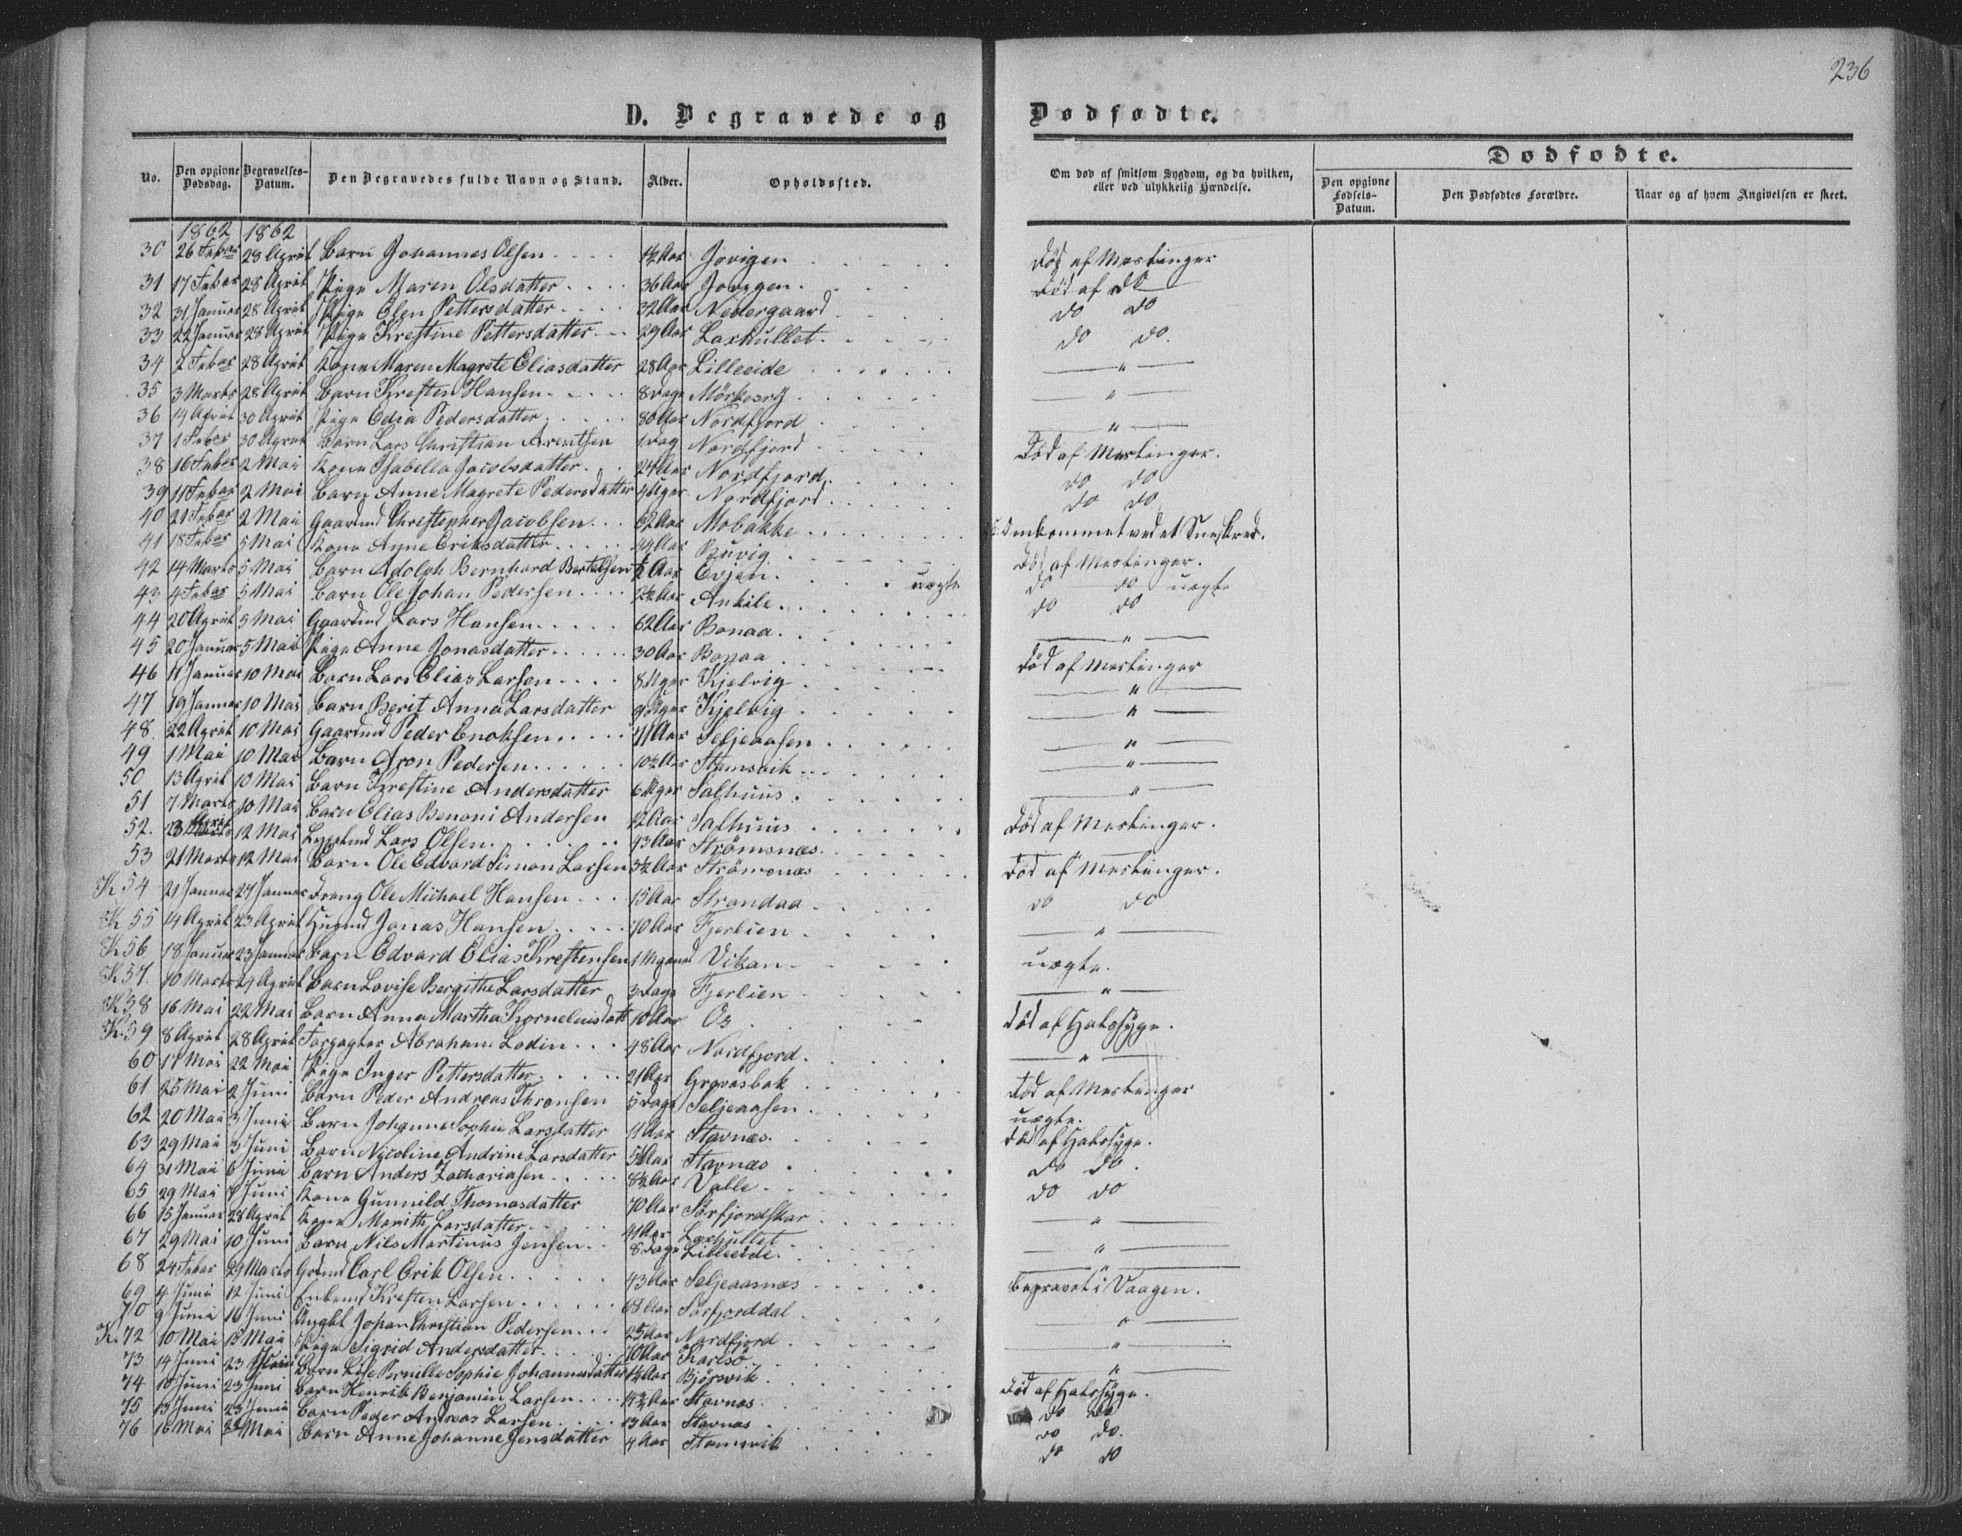 236
D. Begravede og Dødfødte.
No. Den opgivne Dødsdag. Begravelses-Datum. Den Begravedes fulde Navn og Stand. Alder. Opholdssted. Om død af smitsom Sygdom, og da hvilken, eller ved ulykkelig Hændelse.
Dødfødte.
Den opgivne Fødsels-Datum. Den Dødfødtes Forældre. Naar og af hvem Angivelsen er skeet.
1862 1862
30 26 Febar 28 April Barn Johannes Olsen 1½ Aar Jovigen Død af Meslinger
31 17 Febar 28 April Pige Maren Olsdatter 36 Aar Jovigen Død af do
32 31 Januar 28 April Pige Elen Pettersdatter 32 Aar Nedergaard do do
33 22 Januar 28 April Pige Krestine Pettersdatter 29 Aar Laxhullet do do.
34 2 Febar 28 April Kone Maren Magrete Eliasdatter 28 Aar Lilleeide "
35 3 Marts 28 April Barn Kresten Hansen 8 Dage "
36 14 April 30 April Pige Edia Pedersdatter 80 Aar Nordfjord "
37 1 Febar 30 April Barn Lars Christian Arentsen 1 Dag Nordfjord Død af Meslinger.
38 16 Febar 2 Mai Kone Isabella Jacobsdatter 24 Aar Nordfjord do do
39 11 Febar 2 Mai Barn Anne Magrete Pedersdatter 4 Uger Nordfjord do do
40 21 Febar 2 Mai Gaardmd Christopher Jacobsen 62 Aar Mobakke Omkommet ved et Sneskred.
41 18 Febar 5 Mai Kone Anne Eriksdatter 44 Aar Buvig Død af Meslinger.
42 14 Marts 5 Mai Barn Adolph Bernhard Bertelsen ½ Aar Evjen uægte do do uægte
43 4 Febar 5 Mai Barn Ole Johan Pedersen 2½ Aar Ankile do do
44 20 April 5 Mai Gaardmd Lars Hansen 62 Aar Bonaa "
45 20 Januar 5 Mai Pige Anne Jonasdatter 30 Aar Bonaa Død af Meslinger
46 11 Januar 10 Mai Barn Lars Elias Larsen 8 Uger Kjelvig "
47 19 Januar 10 Mai Barn Berit Anna Larsdatter 9 Uger Kjelvig "
48 22 April 10 Mai Gaardmd Peder Enoksen 71 Aar Seljeaasen "
49 1 Mai 10 Mai Barn Aron Pedersen 10½ Aar Stamsvik "
50 13 April 10 Mai Barn Krestine Andersdatter 6 Uger Salhuus "
51 7 Marts 10 Mai Barn Elias Benoni Andersen 12 Aar Salhuus Død af Meslinger.
52. 23 April 12 Mai Lars Olsen 43 Aar Strømsnæs "
53 21 Marts 12 Mai Barn Ole Edvard Simon Larsen 3½ Aar Strømsnæs Død af Meslinger.
K 54 21 Januar 27 Januar Dreng Ole Michael Hansen 15 Aar Strandaa do do
K 55 14 April 23 April Husmd Jonas Hansen 70 Aar Fjerlien "
K 56 18 Januar 23 Januar Barn Edvard Elias Krestensen 1 Maaned Vikan uægte.
K 57. 10 Marts 24 April Barn Lovise Bergithe Larsdatter 3 Dage Fjerlien "
K 58 16 Mai 22 Mai Barn Anna Martha Korneliusdatt 10 Aar Os Død af Halssyge.
K. 59 8 April 28 April Forpagter Abraham Lodin 48 Aar Nordfjord "
60 17 Mai 22 Mai Pige Inger Pettersdatter 21 Aar Grovasbak Død af Meslinger
61 25 Mai 2 Juni Barn Peder Andreas Thronsen 5 Dage Seljeaasen uægte.
62 20 Mai 3 Juni Barn Johanne Sophie Larsdatter 11 Aar Stavnæs Død af Halssyge.
63 29 Mai 3 Juni Barn Nicoline Andrine Larsdatter 5 Aar Stavnæs do do.
64 31 Mai 6 Juni Barn Anders Zachariasen 8½ Aar Valle do do
65 29 Mai 8 Juni Kone Gunnild Thomasdatter 70 Aar Sørfjordskar "
66 15 Januar 28 April Kone Marith Larsdatter 41 Aar Laxhullet "
67 29 Mai 10 Juni Barn Nils Martinus Jensen 8 Dage Lilleeide "
68 24 Febar 29 Marts Grdmd Carl Erik Olsen 43 Aar Seljeaasnæs Begravet i Vaagen.
69 4 Juni 12 Juni Enkemd Kresten Larsen 68 Aar Sørfjorddal "
70 9 Juni 16 Juni Ungkl Johan Christian Pedersen 25 Aar Nordfjord "
K. 72 10 Mai 15 Mai Pige Sigrid Andersdatter 70 Aar Karlsø "
73 14 Juni 23 Juni Barn Lise Pernille Sophie Johannesdatter 1½ Aar Bjørsvik Død af Halssyge.
74 18 Juni 23 Juni Barn Henrik Benjamin Larsen 4½ Aar Stavnæs do do
75 13 Juni 23 Juni Barn Peder Andreas Larsen 13 Aar Stavnæs do do.
76 16 Mai Mai Barn Anne Johanne Jensdatter 4 Aar Stamsvik do do